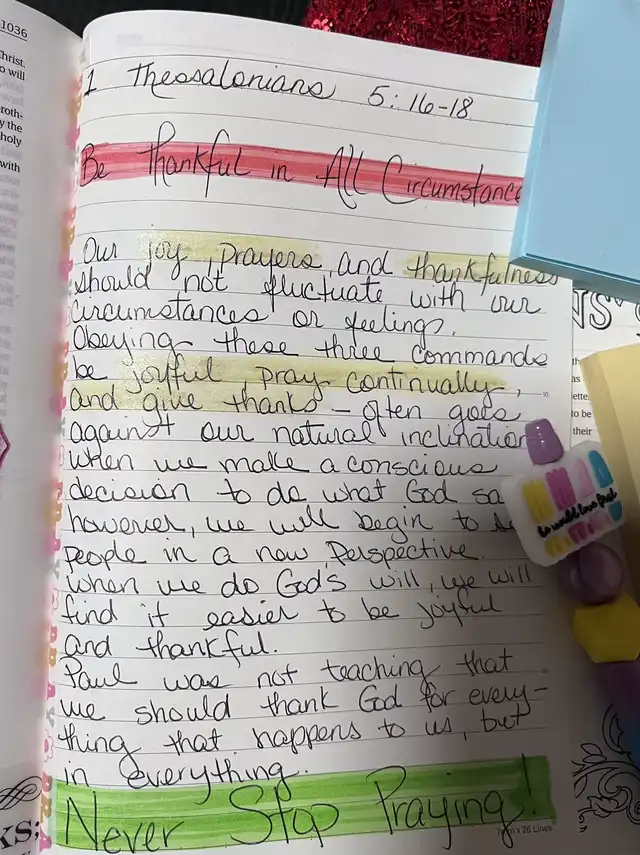 1036
Christ.
o will
roth-
y the
holy
with
1 Thessalonians 5:16-18
Be Thankful in All Circumstance
Our joy, prayers, and thankfulness
should not fluctuate with our
circumstances or feelings.
Obeying these three commands
be joyful, pray continually,
and give thanks – often goes
against our natural inclination
when we make a conscious
decision to do what God sa
however, we will begin to
people in a new perspective.
when we do God's will, we will
find it easier to be joyful
and thankful.
Paul was not teaching that
we should thank God for every-
thing that happens to us, but
in everything.
Never Stop Praying!
7mm x 26 Lines
NS
th
as
ette.
to be
their
KS;